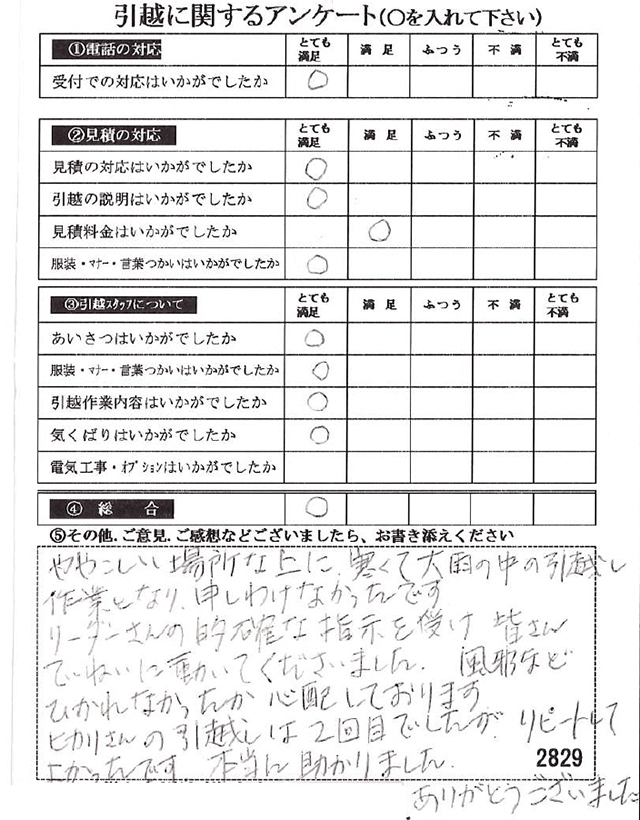 引越に関するアンケート(〇を入れて下さい)
①電話の対応 とても満足 満足 ふつう 不満 とても不満
受付での対応はいかがでしたか ○
②見積の対応 とても満足 満足 ふつう 不満 とても不満
見積の対応はいかがでしたか ○
引越の説明はいかがでしたか ○
見積料金はいかがでしたか ○
服装・マナー・言葉つかいはいかがでしたか ○
③引越スタッフについて とても満足 満足 ふつう 不満 とても不満
あいさつはいかがでしたか ○
服装・マナー・言葉つかいはいかがでしたか ○
引越作業内容はいかがでしたか ○
気くばりはいかがでしたか ○
電気工事・オプションはいかがでしたか
④ 総 合 ○
⑤その他.ご意見.ご感想などございましたら、お書き添えください
ややこしい場所な上に、寒くて大雨の中の引越し
作業となり、申しわけなかったです
リーダーさんの的確な指示を受け 皆さん
ていねいに動いてくださいました. 風邪など
ひかれなかったか 心配しております
ヒカリさんの引越しは2回目でしたが、リピートして
よかったです 本当に助かりました.
2829
ありがとうございました